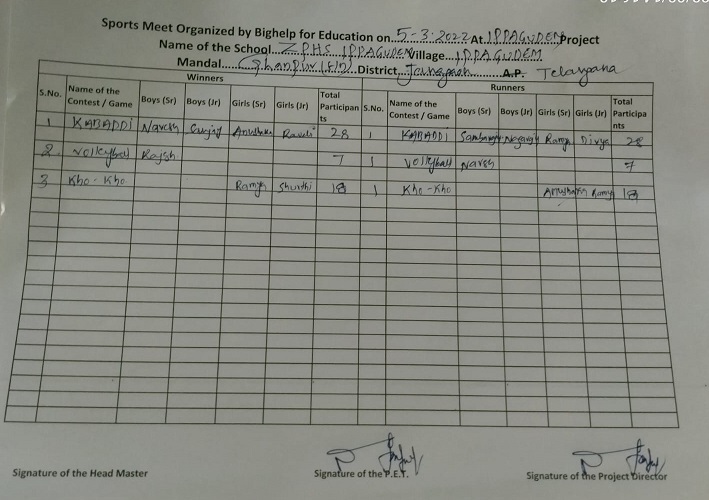 Sports Meet Organized by Bighelp for Education on 5-3-2022 At IPPAGUDEM Project
Name of the School ZPHS IPPAGUDEM Village IPPAGUDEM
Mandal Ghanpur (Stn) District Jangaon A.P. Telangana
Winners Runners
S.No. Name of the Contest / Game Boys (Sr) Boys (Jr) Girls (Sr) Girls (Jr) Total Participants S.No. Name of the Contest / Game Boys (Sr) Boys (Jr) Girls (Sr) Girls (Jr) Total Participants
1 KABADDI Naresh Anusha 28 1 KABADDI Ramya Divya 28
2. Volleyball Rajesh 7 1 Volleyball Naresh 7
3 Kho-Kho Ramya Shruthi 18 1 Kho-Kho Ramya 18
Signature of the Head Master Signature of the P.E.T. Signature of the Project Director